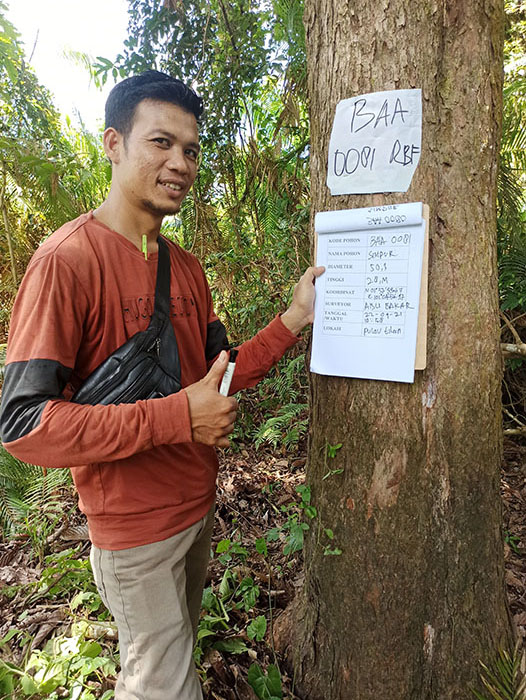 BAA
0081 RBF
BAA 0080
KODE POHON BAA 0081
NAMA POHON SEMPUR
DIAMETER 50,1
TINGGI 20,M
KOORDINAT
SURVEYOR ABU BAKAR
TANGGAL 22-04-21
WAKTU
LOKASI PULAU